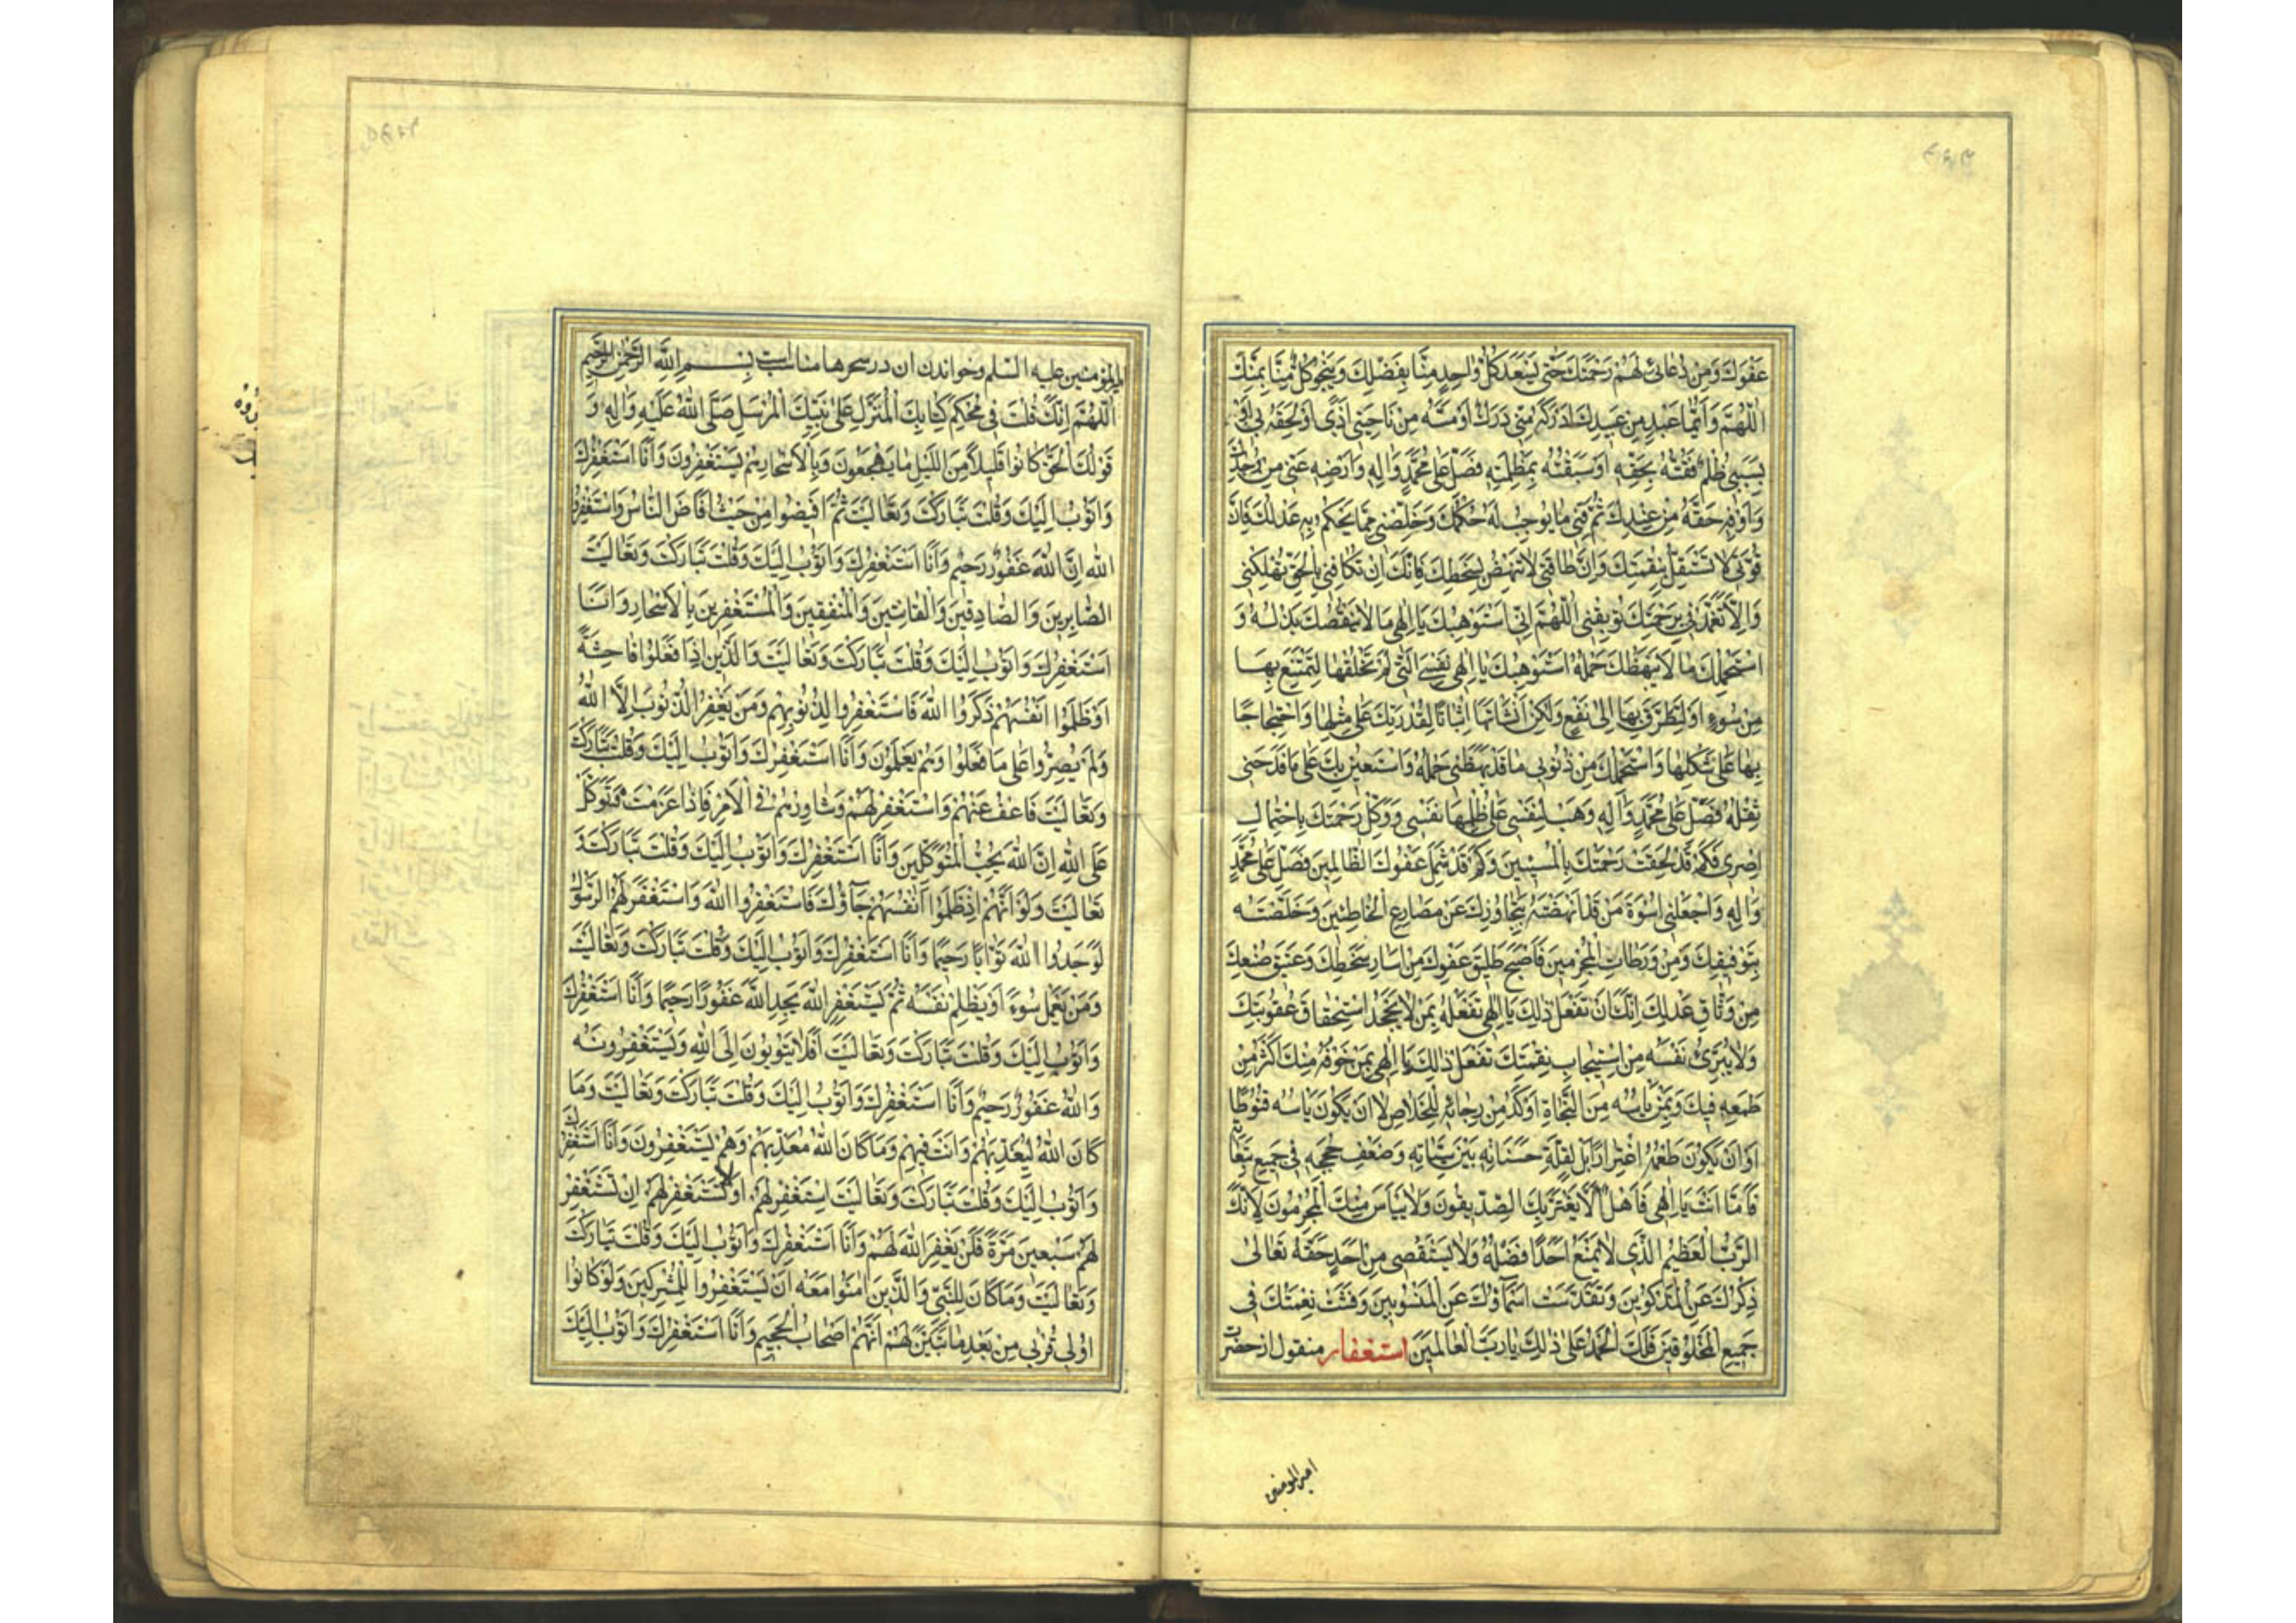 عَفْوَكَ وَمِنْ دُعَائِى لَهُمْ رَحْمَتَكَ حَتّٰى يَسْعَدَ كُلُّ وَاحِدٍ مِنَّا بِفَضْلِكَ وَيَنْجُوَ كُلٌّ مِنَّا بِمَنِّكَ
اَللّٰهُمَّ وَاَيُّمَا عَبْدٍ مِنْ عَبِيدِكَ اَدْرَكَهُ مِنّى دَرَكٌ اَوْ مَسَّهُ مِنْ نَاحِيَتى اَذًى اَوْ لَحِقَهُ بى اَوْ
بِسَبَبى ظُلْمٌ فَفُتُّهُ بِحَقِّهِ اَوْ سَبَقْتُهُ بِمَظْلِمَتِهِ فَصَلِّ عَلٰى مُحَمَّدٍ وَاٰلِهِ وَاَرْضِهِ عَنّى مِنْ وُجْدِكَ
وَاَوْفِهِ حَقَّهُ مِنْ عِنْدِكَ ثُمَّ قِنى مَا يُوجِبُ لَهُ حُكْمُكَ وَخَلِّصْنى مِمَّا يَحْكُمُ بِهِ عَدْلُكَ فَاِنَّ
قُوَّتى لَا تَسْتَقِلُّ بِنِقْمَتِكَ وَاِنَّ طَاقَتى لَا تَنْهَضُ بِسَخَطِكَ فَاِنَّكَ اِنْ تُكَافِنى بِالْحَقِّ تُهْلِكْنى
وَاِلَّا تَغَمَّدْنى بِرَحْمَتِكَ تُوبِقْنى اَللّٰهُمَّ اِنّى اَسْتَوْهِبُكَ يَا اِلٰهى مَا لَا يَنْقُصُكَ بَذْلُهُ وَ
اَسْتَحْمِلُكَ مَا لَا يَبْهَظُكَ حَمْلُهُ اَسْتَوْهِبُكَ يَا اِلٰهى نَفْسِىَ الَّتى لَمْ تَخْلُقْهَا لِتَمْتَنِعَ بِهَا
مِنْ سُوءٍ اَوْ لِتَطَرَّقَ بِهَا اِلٰى نَفْعٍ وَلٰكِنْ اَنْشَأْتَهَا اِثْبَاتًا لِقُدْرَتِكَ عَلٰى مِثْلِهَا وَاحْتِجَاجًا
بِهَا عَلٰى شَكْلِهَا وَاَسْتَحْمِلُكَ مِنْ ذُنُوبى مَا قَدْ بَهَظَنى حَمْلُهُ وَاَسْتَعِينُ بِكَ عَلٰى مَا فَدَحَنى
ثِقْلُهُ فَصَلِّ عَلٰى مُحَمَّدٍ وَاٰلِهِ وَهَبْ لِنَفْسى عَلٰى ظُلْمِهَا نَفْسى وَوَكِّلْ رَحْمَتَكَ بِاحْتِمَالِ
اِصْرى فَكَمْ قَدْ لَحِقَتْ رَحْمَتُكَ بِالْمُسِيئِينَ وَكَمْ قَدْ شَمِلَ عَفْوُكَ الظَّالِمِينَ فَصَلِّ عَلٰى مُحَمَّدٍ
وَاٰلِهِ وَاجْعَلْنى اُسْوَةَ مَنْ قَدْ اَنْهَضْتَهُ بِتَجَاوُزِكَ عَنْ مَصَارِعِ الْخَاطِئِينَ وَخَلَّصْتَهُ
بِتَوْفِيقِكَ وَمِنْ وَرَطَاتِ الْمُجْرِمِينَ فَاَصْبَحَ طَلِيقَ عَفْوِكَ مِنْ اِسَارِ سَخَطِكَ وَعَتِيقَ صُنْعِكَ
مِنْ وَثَاقِ عَدْلِكَ اِنَّكَ اِنْ تَفْعَلْ ذٰلِكَ يَا اِلٰهى تَفْعَلْهُ بِمَنْ لَا يَجْحَدُ اسْتِحْقَاقَ عُقُوبَتِكَ
وَلَا يُبَرِّئُ نَفْسَهُ مِنِ اسْتِيجَابِ نِقْمَتِكَ تَفْعَلْ ذٰلِكَ يَا اِلٰهى بِمَنْ خَوْفُهُ مِنْكَ اَكْثَرُ مِنْ
طَمَعِهِ فِيكَ وَبِمَنْ يَأْسُهُ مِنَ النَّجَاةِ اَوْكَدُ مِنْ رَجَائِهِ لِلْخَلَاصِ لَا اَنْ يَكُونَ يَأْسُهُ قُنُوطًا
اَوْ اَنْ يَكُونَ طَمَعُهُ اغْتِرَارًا بَلْ لِقِلَّةِ حَسَنَاتِهِ بَيْنَ سَيِّئَاتِهِ وَضَعْفِ حُجَجِهِ فى جَمِيعِ تَبِعَاتِهِ
فَاَمَّا اَنْتَ يَا اِلٰهى فَاَهْلٌ اَنْ لَا يَغْتَرَّ بِكَ الصِّدِّيقُونَ وَلَا يَيْأَسَ مِنْكَ الْمُجْرِمُونَ لِاَنَّكَ
الرَّبُّ الْعَظِيمُ الَّذى لَا يَمْنَعُ اَحَدًا فَضْلَهُ وَلَا يَسْتَقْصى مِنْ اَحَدٍ حَقَّهُ تَعَالٰى
ذِكْرُكَ عَنِ الْمَذْكُورِينَ وَتَقَدَّسَتْ اَسْمَاؤُكَ عَنِ الْمَنْسُوبِينَ وَفَشَتْ نِعْمَتُكَ فى
جَمِيعِ الْمَخْلُوقِينَ فَلَكَ الْحَمْدُ عَلٰى ذٰلِكَ يَا رَبَّ الْعَالَمِينَ استغفار منقول از حضرت
امیرالمومنین
المؤمنین علیه السلم وخواندن ان در سحرها مناسب است بِسْمِ اللّٰهِ الرَّحْمٰنِ الرَّحِيمِ
اَللّٰهُمَّ اِنَّكَ قُلْتَ فى مُحْكَمِ كِتَابِكَ الْمُنْزَلِ عَلٰى نَبِيِّكَ الْمُرْسَلِ صَلَّى اللّٰهُ عَلَيْهِ وَاٰلِهِ وَ
قَوْلُكَ الْحَقُّ كَانُوا قَلِيلًا مِنَ اللَّيْلِ مَا يَهْجَعُونَ وَبِالْاَسْحَارِ هُمْ يَسْتَغْفِرُونَ وَاَنَا اَسْتَغْفِرُكَ
وَاَتُوبُ اِلَيْكَ وَقُلْتَ تَبَارَكْتَ وَتَعَالَيْتَ ثُمَّ اَفِيضُوا مِنْ حَيْثُ اَفَاضَ النَّاسُ وَاسْتَغْفِرُوا
اللّٰهَ اِنَّ اللّٰهَ غَفُورٌ رَحِيمٌ وَاَنَا اَسْتَغْفِرُكَ وَاَتُوبُ اِلَيْكَ وَقُلْتَ تَبَارَكْتَ وَتَعَالَيْتَ
الصَّابِرِينَ وَالصَّادِقِينَ وَالْقَانِتِينَ وَالْمُنْفِقِينَ وَالْمُسْتَغْفِرِينَ بِالْاَسْحَارِ وَاَنَا
اَسْتَغْفِرُكَ وَاَتُوبُ اِلَيْكَ وَقُلْتَ تَبَارَكْتَ وَتَعَالَيْتَ وَالَّذِينَ اِذَا فَعَلُوا فَاحِشَةً
اَوْ ظَلَمُوا اَنْفُسَهُمْ ذَكَرُوا اللّٰهَ فَاسْتَغْفَرُوا لِذُنُوبِهِمْ وَمَنْ يَغْفِرُ الذُّنُوبَ اِلَّا اللّٰهُ
وَلَمْ يُصِرُّوا عَلٰى مَا فَعَلُوا وَهُمْ يَعْلَمُونَ وَاَنَا اَسْتَغْفِرُكَ وَاَتُوبُ اِلَيْكَ وَقُلْتَ تَبَارَكْتَ
وَتَعَالَيْتَ فَاعْفُ عَنْهُمْ وَاسْتَغْفِرْ لَهُمْ وَشَاوِرْهُمْ فِى الْاَمْرِ فَاِذَا عَزَمْتَ فَتَوَكَّلْ
عَلَى اللّٰهِ اِنَّ اللّٰهَ يُحِبُّ الْمُتَوَكِّلِينَ وَاَنَا اَسْتَغْفِرُكَ وَاَتُوبُ اِلَيْكَ وَقُلْتَ تَبَارَكْتَ وَ
تَعَالَيْتَ وَلَوْ اَنَّهُمْ اِذْ ظَلَمُوا اَنْفُسَهُمْ جَآؤُكَ فَاسْتَغْفَرُوا اللّٰهَ وَاسْتَغْفَرَ لَهُمُ الرَّسُولُ
لَوَجَدُوا اللّٰهَ تَوَّابًا رَحِيمًا وَاَنَا اَسْتَغْفِرُكَ وَاَتُوبُ اِلَيْكَ وَقُلْتَ تَبَارَكْتَ وَتَعَالَيْتَ
وَمَنْ يَعْمَلْ سُوءً اَوْ يَظْلِمْ نَفْسَهُ ثُمَّ يَسْتَغْفِرِ اللّٰهَ يَجِدِ اللّٰهَ غَفُورًا رَحِيمًا وَاَنَا اَسْتَغْفِرُكَ
وَاَتُوبُ اِلَيْكَ وَقُلْتَ تَبَارَكْتَ وَتَعَالَيْتَ اَفَلَا يَتُوبُونَ اِلَى اللّٰهِ وَيَسْتَغْفِرُونَهُ
وَاللّٰهُ غَفُورٌ رَحِيمٌ وَاَنَا اَسْتَغْفِرُكَ وَاَتُوبُ اِلَيْكَ وَقُلْتَ تَبَارَكْتَ وَتَعَالَيْتَ وَمَا
كَانَ اللّٰهُ لِيُعَذِّبَهُمْ وَاَنْتَ فِيهِمْ وَمَا كَانَ اللّٰهُ مُعَذِّبَهُمْ وَهُمْ يَسْتَغْفِرُونَ وَاَنَا اَسْتَغْفِرُكَ
وَاَتُوبُ اِلَيْكَ وَقُلْتَ تَبَارَكْتَ وَتَعَالَيْتَ اِسْتَغْفِرْ لَهُمْ اَوْ لَا تَسْتَغْفِرْ لَهُمْ اِنْ تَسْتَغْفِرْ
لَهُمْ سَبْعِينَ مَرَّةً فَلَنْ يَغْفِرَ اللّٰهُ لَهُمْ وَاَنَا اَسْتَغْفِرُكَ وَاَتُوبُ اِلَيْكَ وَقُلْتَ تَبَارَكْتَ
وَتَعَالَيْتَ وَمَا كَانَ لِلنَّبِىِّ وَالَّذِينَ اٰمَنُوا مَعَهُ اَنْ يَسْتَغْفِرُوا لِلْمُشْرِكِينَ وَلَوْ كَانُوا
اُولى قُرْبٰى مِنْ بَعْدِ مَا تَبَيَّنَ لَهُمْ اَنَّهُمْ اَصْحَابُ الْجَحِيمِ وَاَنَا اَسْتَغْفِرُكَ وَاَتُوبُ اِلَيْكَ